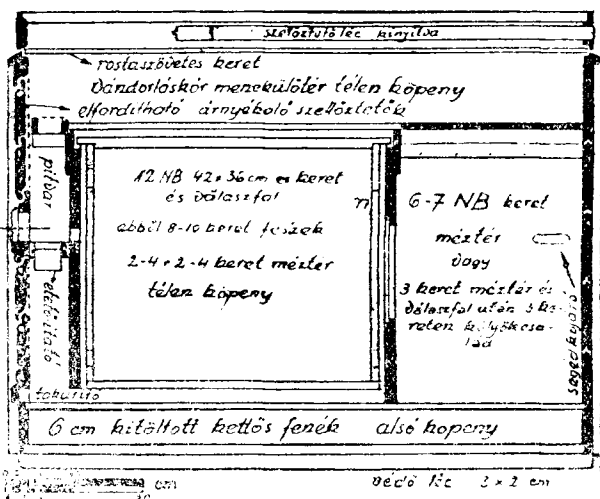 szellőztető léc kinyitva
rostaszövetes keret
Vándorláskor menekülőtér télen köpeny
elfordítható árnyékoló szellőztetők
pitvar
etető itató
takarító
12 NB 42 x 36 cm es keret
és válaszfal
ebből 8-10 keret fészek
2-4 + 2-4 keret méztér
télen köpeny
6-7 NB keret
méztér
vagy
3 keret méztér és
válaszfal után 3 ke-
reten kölyökcsa-
lád
segédkijáró
6 cm kitöltött kettős fenék alsó köpeny
cm
védő léc 3 x 2 cm